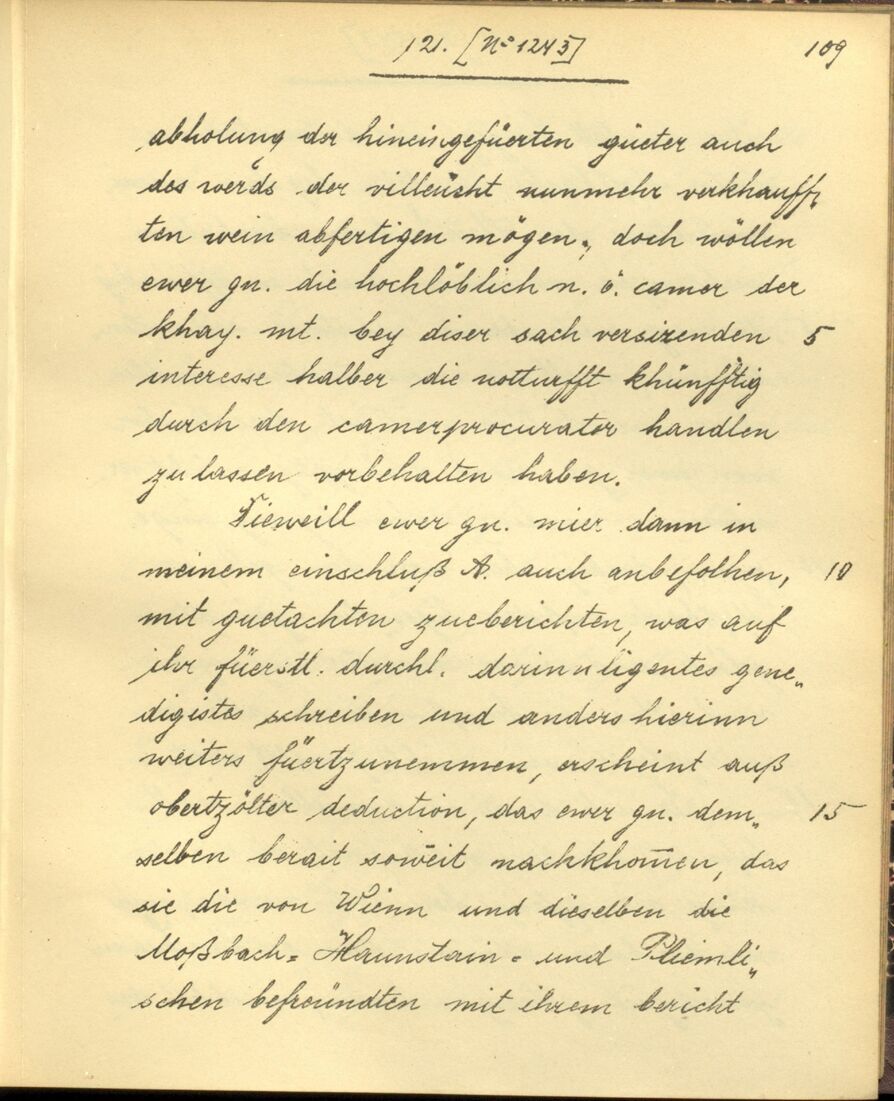 121. [Nº 1243] 109
abholung der hineingefüerten güeter auch
des werds der villeücht nunmehr verkhauff„
ten wein abfertigen mögen, doch wöllen
ewer gn. die hochlöblich n. ö. camer der
khay. mt. bey diser sach versirenden 5
interesse halber die notturfft khünfftig
durch den camerprocurator handlen
zu lassen vorbehalten haben.
Dieweill ewer gn. mier dann in
meinem einschluß A. auch anbefolhen, 10
mit guetachten zueberichten, was auf
ihr füerstl. durchl. darinn ligentes gene„
digistes schreiben und anders hierinn
weiters füertzunemmen, erscheint auß
obertzölter deduction, das ewer gn. dem„ 15
selben berait soweit nachkhom̄en, das
sie die von Wienn und dieselben die
Moßbach- Haunstain- und Pliemli„
schen befreündten mit ihrem bericht